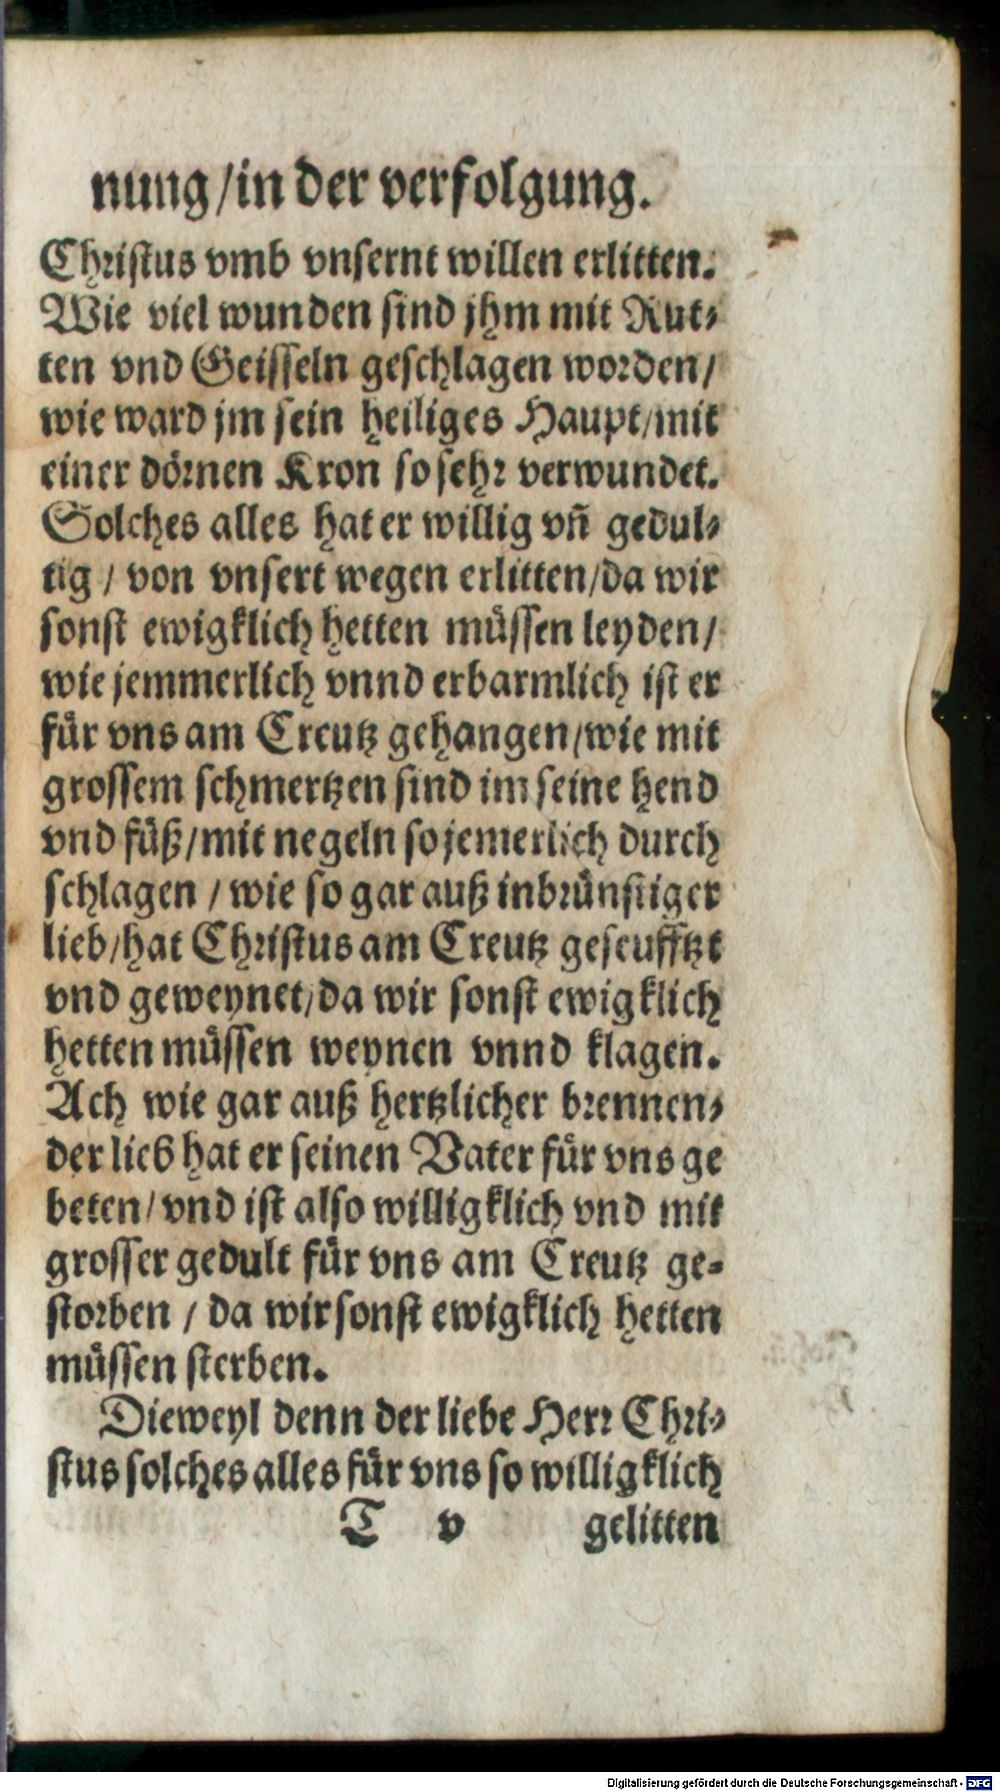 nung/in der verfolgung.
Christus vmb vnsernt willen erlitten.
Wie viel wunden sind jhm mit Rut-
ten vnd Geisseln geschlagen worden/
wie ward jm sein heiliges Haupt/mit
einer dörnen Kron so sehr verwundet.
Solches alles hat er willig vñ gedul-
tig / von vnsert wegen erlitten/da wir
sonst ewigklich hetten müssen leyden/
wie jemmerlich vnnd erbarmlich ist er
für vns am Creutz gehangen/wie mit
grossem schmertzen sind im seine hend
vnd füß/mit negeln so jemerlich durch
schlagen / wie so gar auß inbrünstiger
lieb/hat Christus am Creutz geseufftzt
vnd geweynet/da wir sonst ewigklich
hetten müssen weynen vnnd klagen.
Ach wie gar auß hertzlicher brennen-
der lieb hat er seinen Vater für vns ge
beten/vnd ist also willigklich vnd mit
grosser gedult für vns am Creutz ge-
storben / da wir sonst ewigklich hetten
müssen sterben.
Dieweyl denn der liebe Herr Chri-
stus solches alles für vns so willigklich
T v gelitten
Digitalisierung gefördert durch die Deutsche Forschungsgemeinschaft - DFG